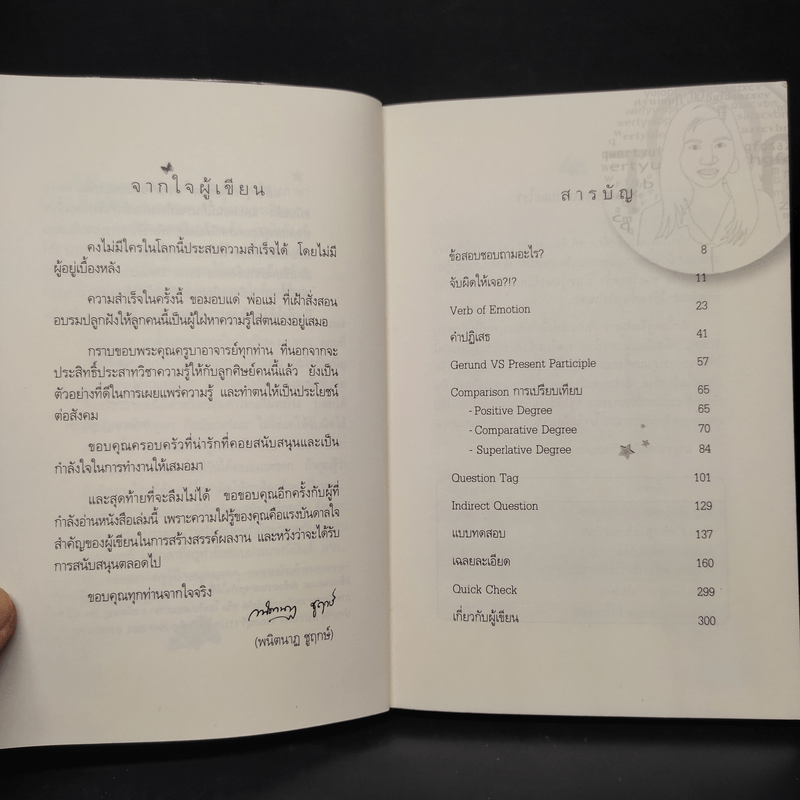 จากใจผู้เขียน
คงไม่มีใครในโลกนี้ประสบความสำเร็จได้ โดยไม่มี
ผู้อยู่เบื้องหลัง
ความสำเร็จในครั้งนี้ ขอมอบแด่ พ่อแม่ ที่เฝ้าสั่งสอน
อบรมปลูกฝังให้ลูกคนนี้เป็นผู้ใฝ่หาความรู้ใส่ตนเองอยู่เสมอ
กราบขอบพระคุณครูบาอาจารย์ทุกท่าน ที่นอกจากจะ
ประสิทธิ์ประสาทวิชาความรู้ให้กับลูกศิษย์คนนี้แล้ว ยังเป็น
ตัวอย่างที่ดีในการเผยแพร่ความรู้ และทำตนให้เป็นประโยชน์
ต่อสังคม
ขอบคุณครอบครัวที่น่ารักที่คอยสนับสนุนและเป็น
กำลังใจในการทำงานให้เสมอมา
และสุดท้ายที่จะลืมไม่ได้ ขอขอบคุณอีกครั้งกับผู้ที่
กำลังอ่านหนังสือเล่มนี้ เพราะความใฝ่รู้ของคุณคือแรงบันดาลใจ
สำคัญของผู้เขียนในการสร้างสรรค์ผลงาน และหวังว่าจะได้รับ
การสนับสนุนตลอดไป
ขอบคุณทุกท่านจากใจจริง
พนิตนาฏ ชูฤกษ์
(พนิตนาฏ ชูฤกษ์)
สารบัญ
ข้อสอบชอบถามอะไร? 8
จับผิดให้เจอ?!? 11
Verb of Emotion 23
คำปฏิเสธ 41
Gerund VS Present Participle 57
Comparison การเปรียบเทียบ 65
- Positive Degree 65
- Comparative Degree 70
- Superlative Degree 84
Question Tag 101
Indirect Question 129
แบบทดสอบ 137
เฉลยละเอียด 160
Quick Check 299
เกี่ยวกับผู้เขียน 300